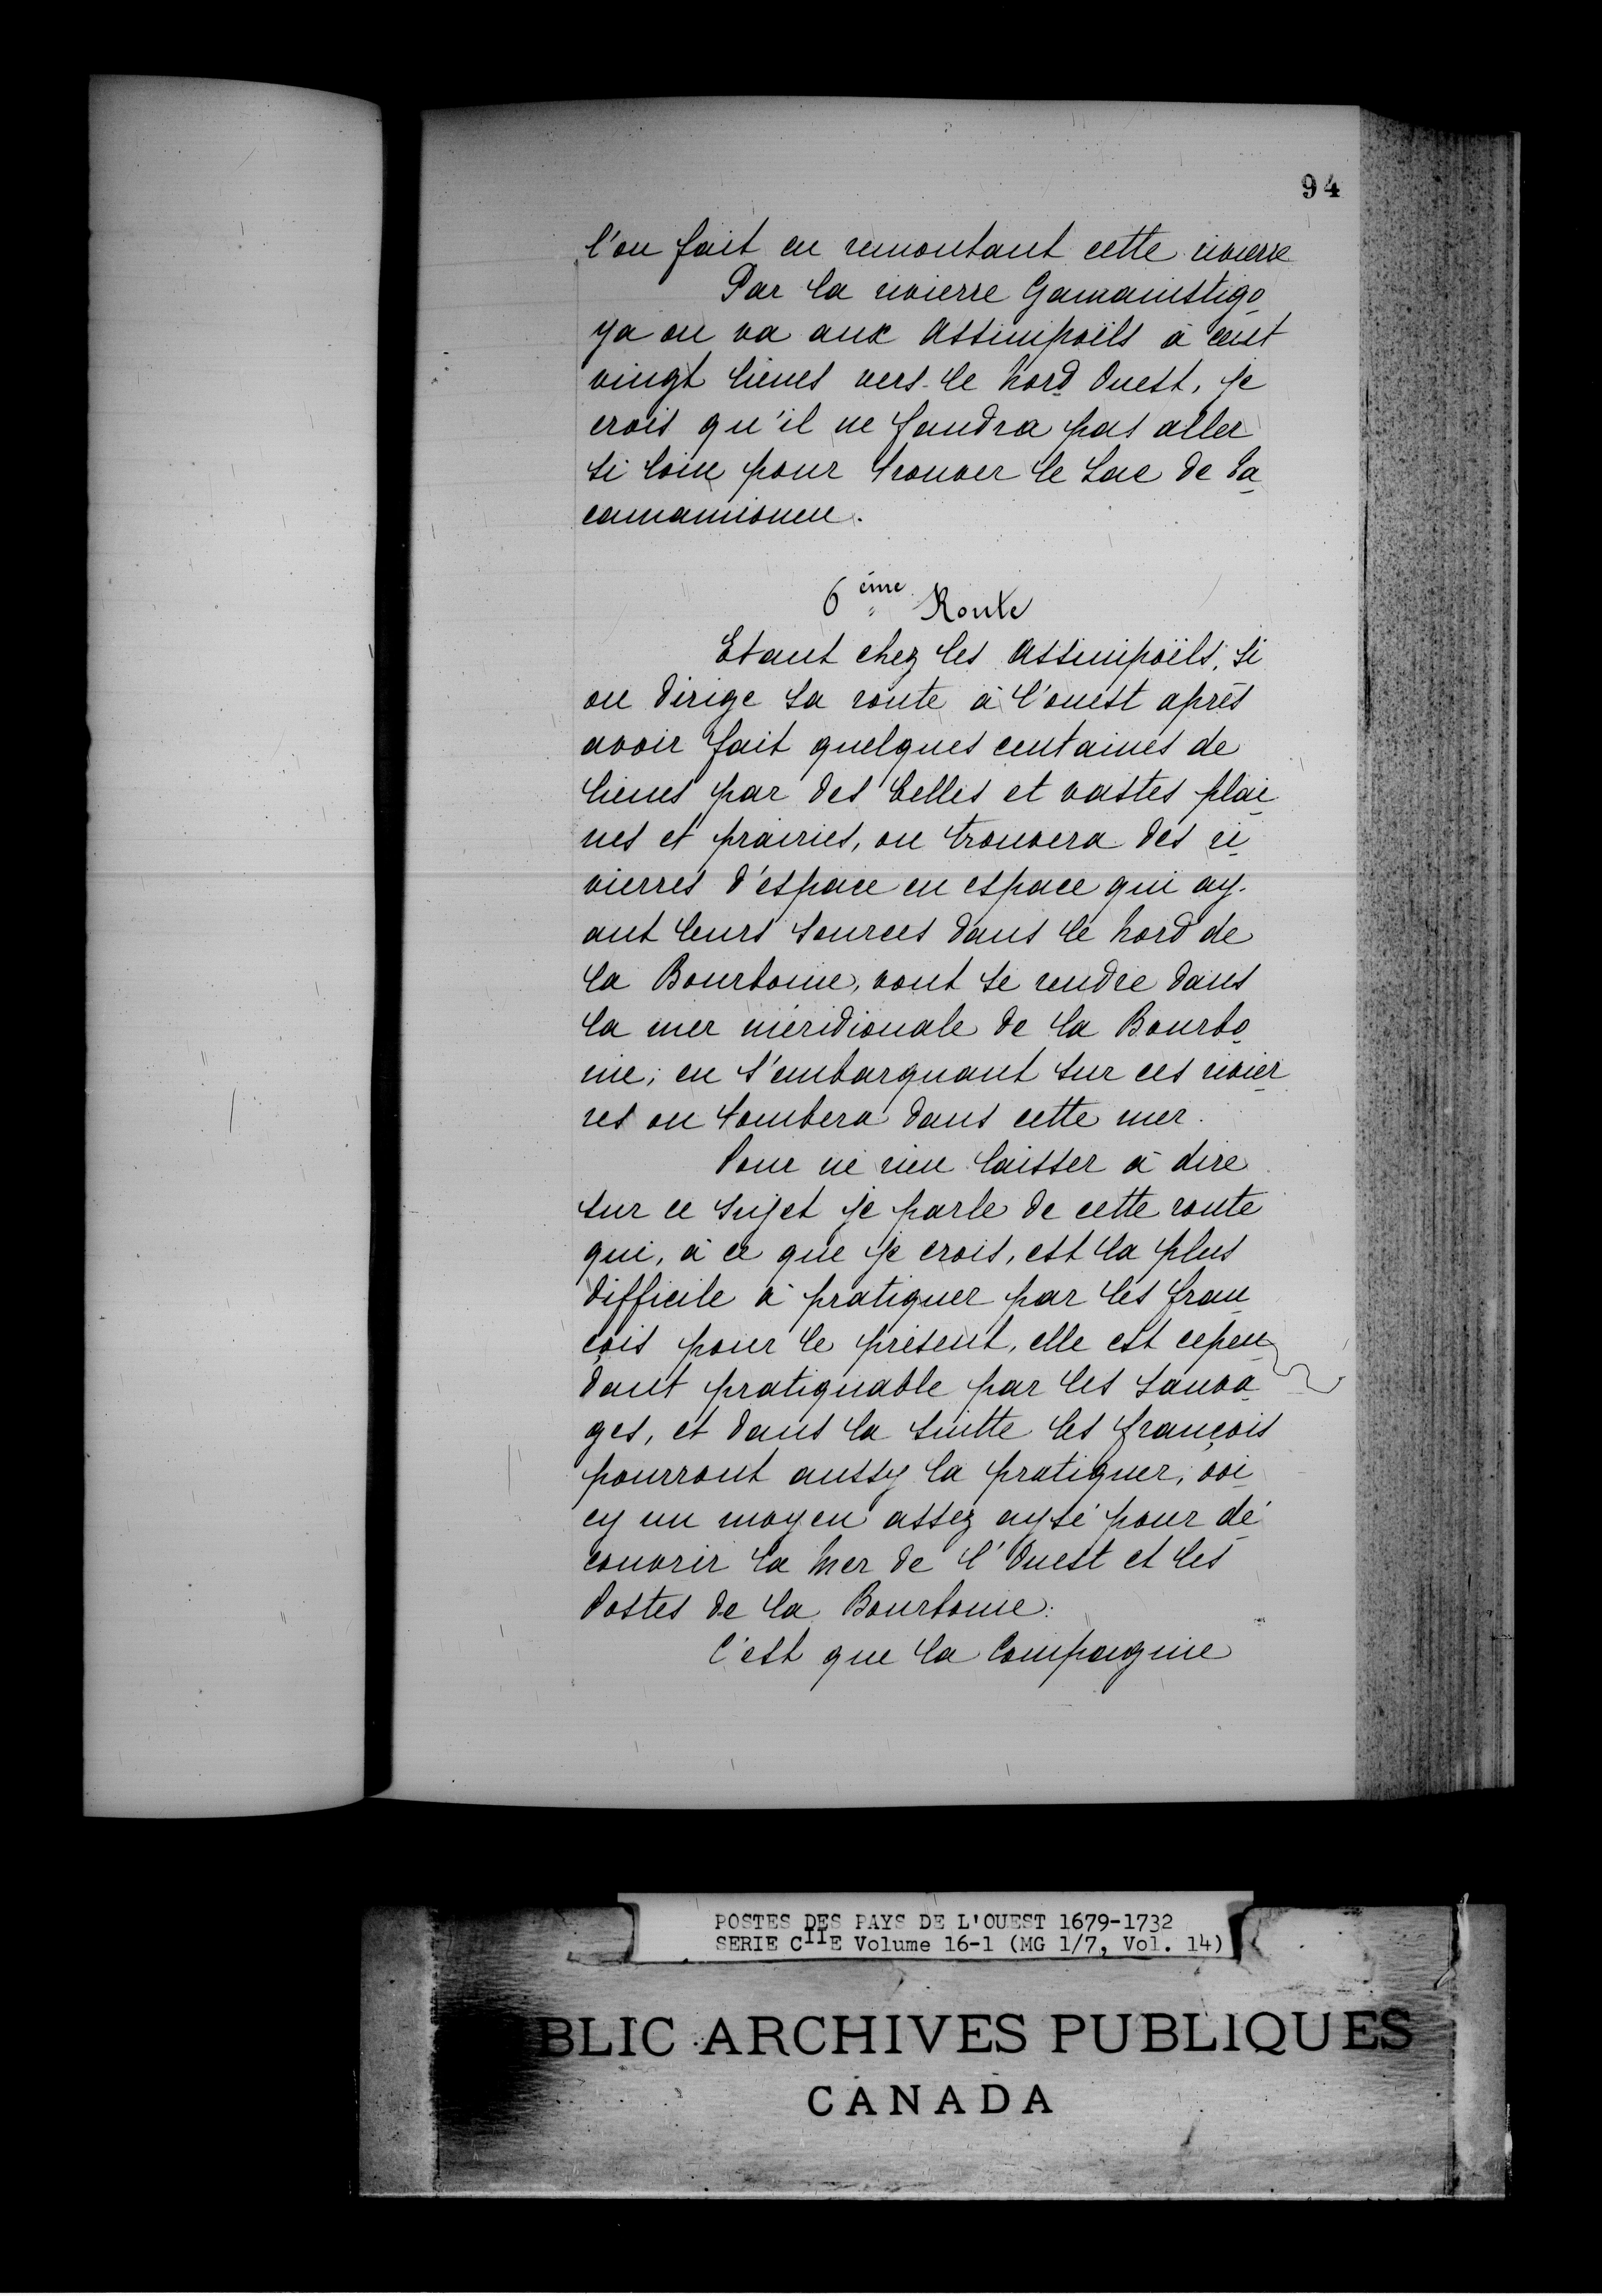 94
l'on fait en remontant cette rivierre
Par la rivierre Gamanistigo
ya on va aux Assinipoëls à cent
vingt lieues vers le Nord Ouest, je
crois qu'il ne faudra pas aller
si loin pour trouver le Lac de Ta
camamionen.
6ème Route
Etant chez les Assinipoëls, si
on dirige sa route à l'ouest après
avoir fait quelques centaines de
lieues par des belles et vastes plai
nes et prairies, on trouvera des ri
vierres d'espace en espace qui ay-
ant leurs sources dans le Nord de
la Bourbonie, vont se rendre dans
la mer méridionale de la Bourbo
nie; en s'embarquant sur ces rivier
res on tombera dans cette mer.
Pour ne rien laisser à dire
sur ce sujet je parle de cette route
qui, à ce que je crois, est la plus
difficile à pratiquer par les fran
çois pour le présent, elle est cepen
dant pratiquable par les sauva
ges, et dans la suitte les françois
pourront aussy la pratiquer, voi
cy un moyen assez aysé pour dé
couvrir la Mer de l'Ouest et les
Postes de la Bourbonie:
C'est que la Compagnie
POSTES DES PAYS DE L'OUEST 1679-1732
SERIE CIIE Volume 16-1 (MG 1/7, Vol. 14)
BLIC ARCHIVES PUBLIQUES
CANADA